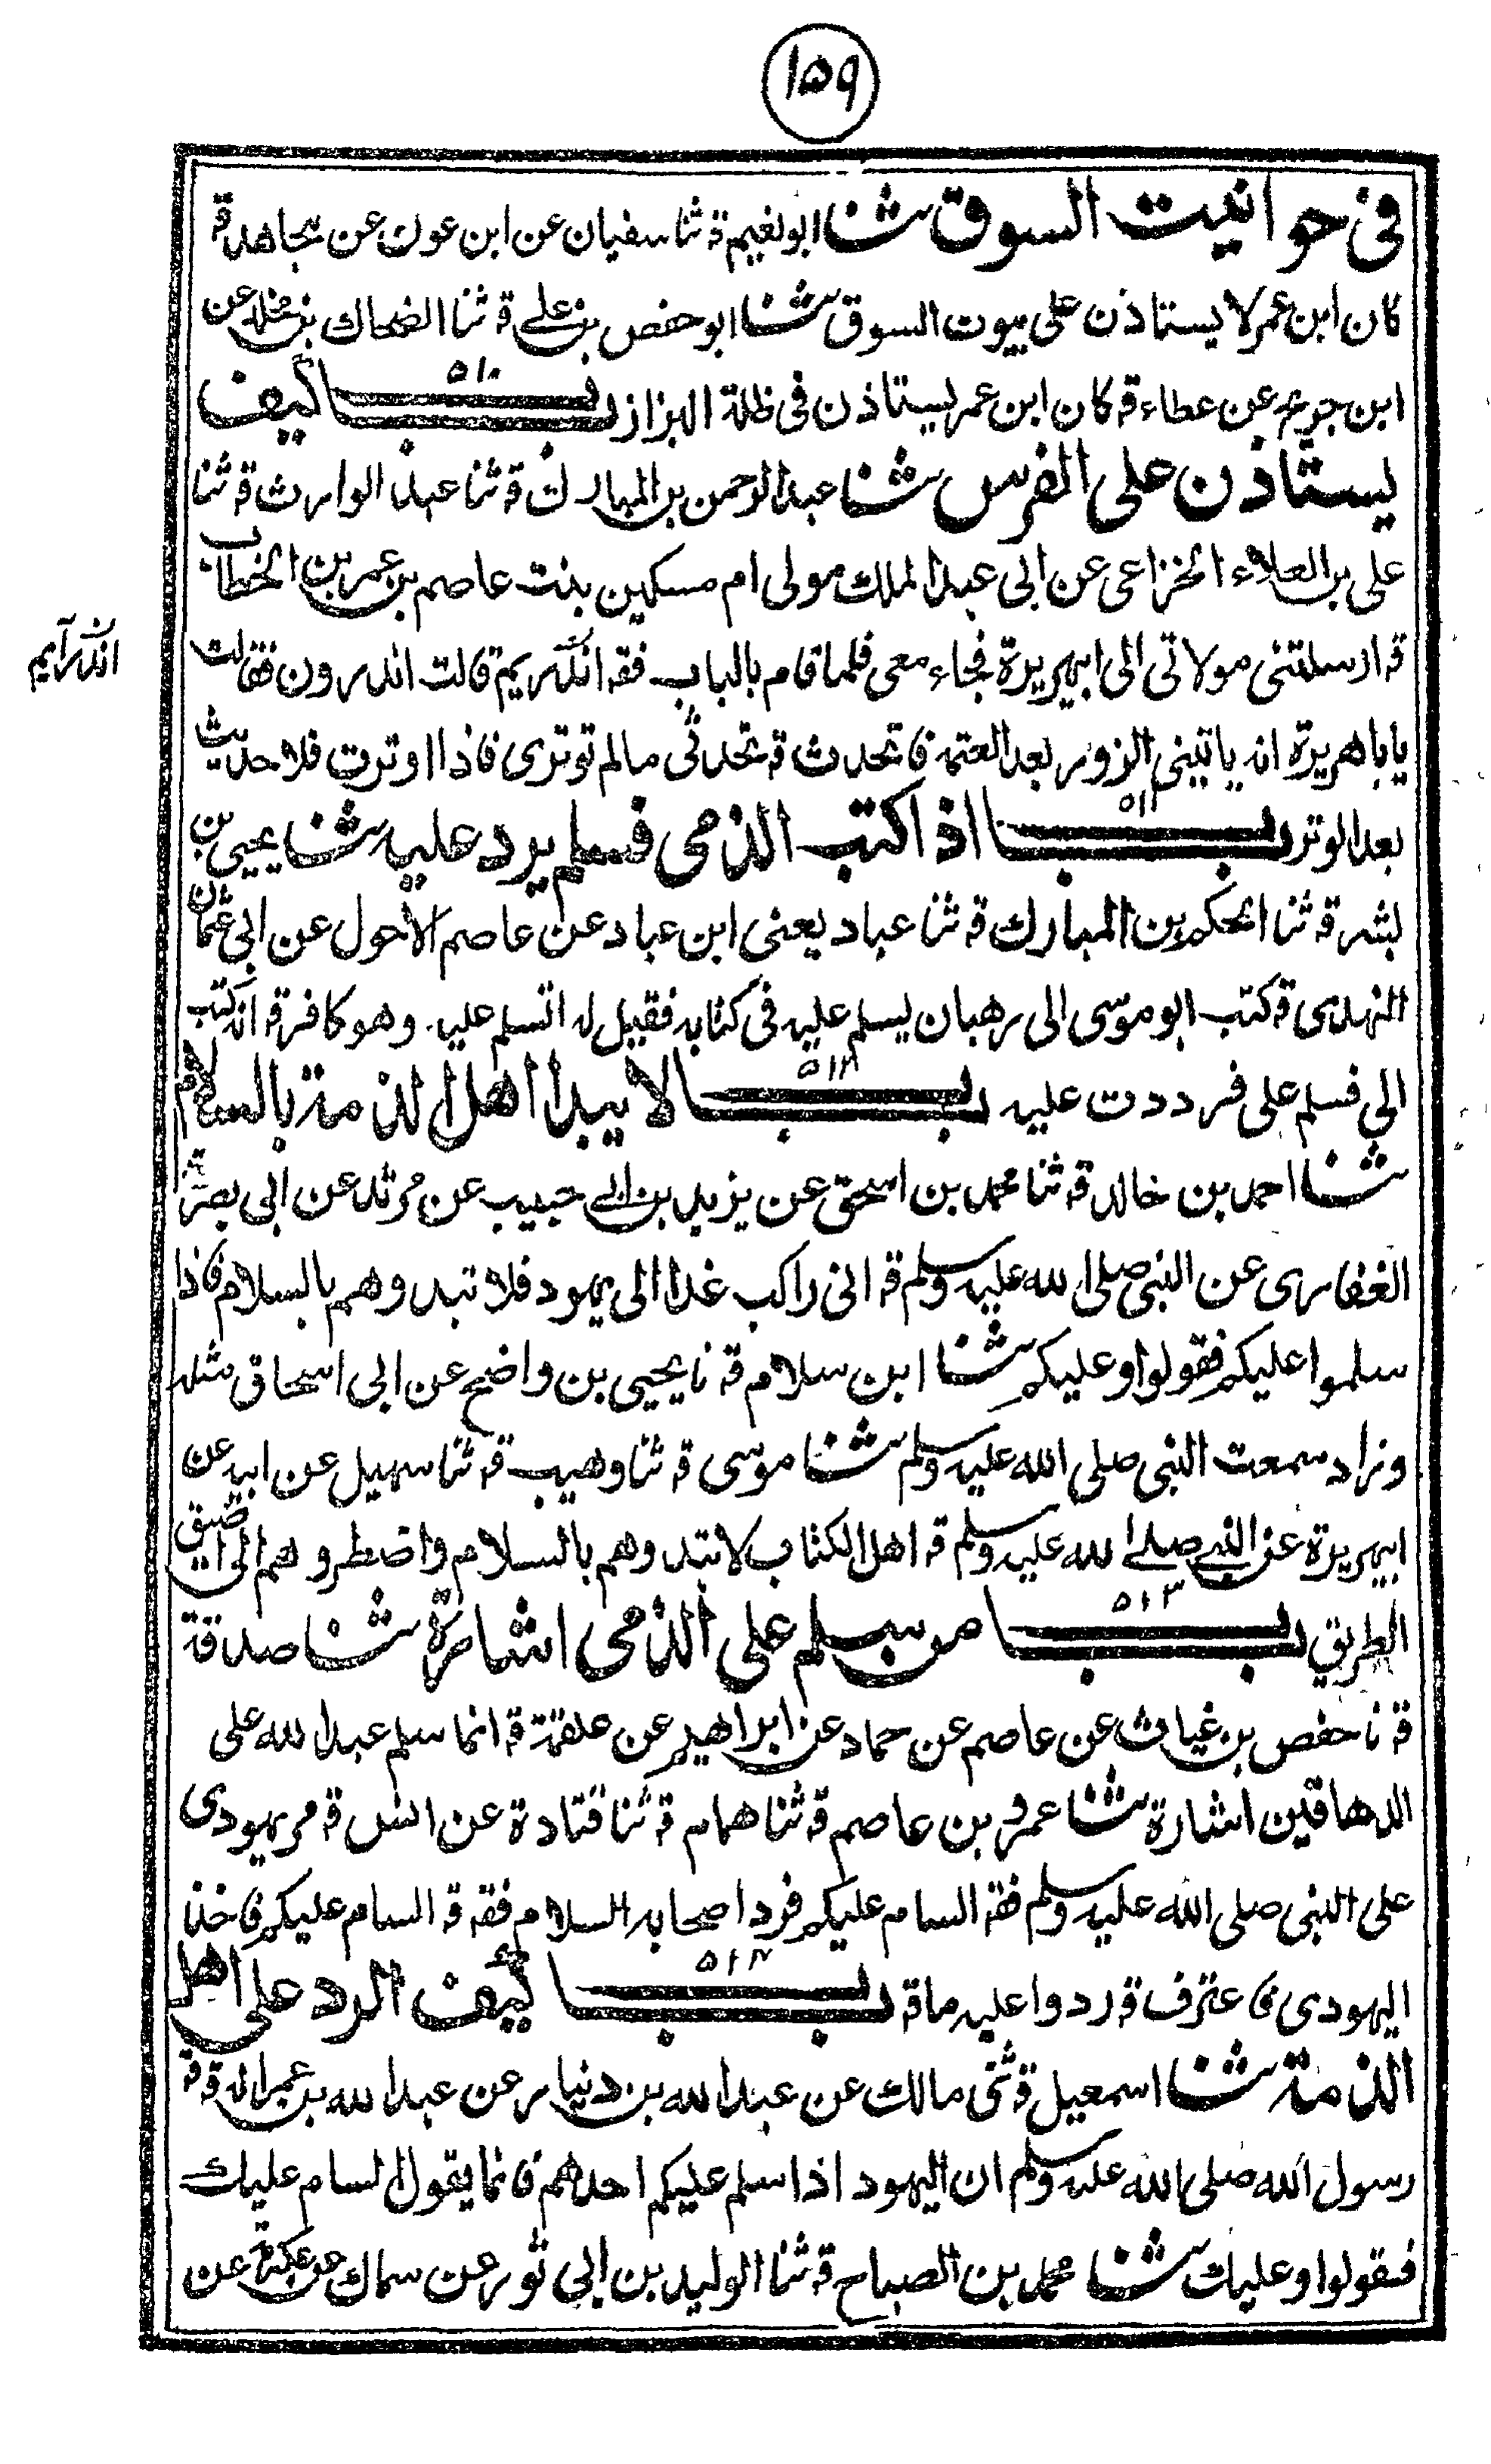 ١٥٩
فى حوانيت السوق ثنا ابو نعيم قه ثنا سفيان عن ابن عون عن مجاهد قه
كان ابن عمر لا يستاذن على بيوت السوق ثنا ابو حفص بن على قه ثنا الضحاك بن مخلد عن
ابن جريج عن عطاء قه كان ابن عمر يستاذن فى ظلة البزاز باب ٥١٠ كيف
يستاذن على الفرس ثنا عبد الرحمن بن المبارك قه ثنا عبد الوارث قه ثنا
على بن العلاء الخزاعى عن ابى عبد الملك مولى ام مسكين بنت عاصم بن عمر بن الخطاب
قه ارسلتنى مولاتى الى ابى هريرة فجاء معى فلما قام بالباب فقه اندريم قالت اندرون فقالت
اندرآيم
يابا هريرة انه ياتينى الزور بعد العتمة فاتحدث قه تحدثى مالم توترى فاذا اوترت فلا حديث
بعد الوتر باب ٥١١ اذا كتب الذمى فسلم يرد عليه ثنا يحيى بن
بشر قه ثنا الحكم بن المبارك قه ثنا عباد يعنى ابن عباد عن عاصم الاحول عن ابى عثمان
النهدى قه كتب ابو موسى الى رهبان يسلم عليه فى كتابه فقيل له اتسلم عليه وهو كافر قه انه كتب
الى فسلم على فرددت عليه باب ٥١٢ لا يبدا اهل الذمة بالسلام
ثنا احمد بن خالد قه ثنا محمد بن اسحق عن يزيد بن ابى حبيب عن مرثد عن ابى بصرة
الغفارى عن النبى صلى الله عليه وسلم قه انى راكب غدا الى يهود فلا تبدوهم بالسلام فاذا
سلموا عليكم فقولوا وعليكم ثنا ابن سلام قه نا يحيى بن واضح عن ابى اسحاق مثله
وزاد سمعت النبى صلى الله عليه وسلم ثنا موسى قه ثنا وهيب قه ثنا سهيل عن ابيه عن
ابى هريرة عن النبى صلى الله عليه وسلم قه اهل الكتاب لا تبدوهم بالسلام واضطروهم الى اضيق
الطريق باب ٥١٣ من سلم على الذمى اشارة ثنا صدقة
قه نا حفص بن غياث عن عاصم عن حماد عن ابراهيم عن علقمة قه انما سلم عبد الله على
الدهاقين اشارة ثنا عمرو بن عاصم قه ثنا همام قه ثنا قتادة عن انس قه مر يهودى
على النبى صلى الله عليه وسلم فقه السام عليكم فرد اصحابه السلام فقه قه السام عليكم فاخذ
اليهودى فاعترف قه ردوا عليه ما قه باب ٥١٤ كيف الرد على اهل
الذمة ثنا اسمعيل قه ثنى مالك عن عبد الله بن دينار عن عبد الله بن عمر انه قه قه
رسول الله صلى الله عليه وسلم ان اليهود اذا سلم عليكم احدهم فانما يقول السام عليك
فقولوا وعليك ثنا محمد بن الصباح قه ثنا الوليد بن ابى ثور عن سماك عن عكرمة عن